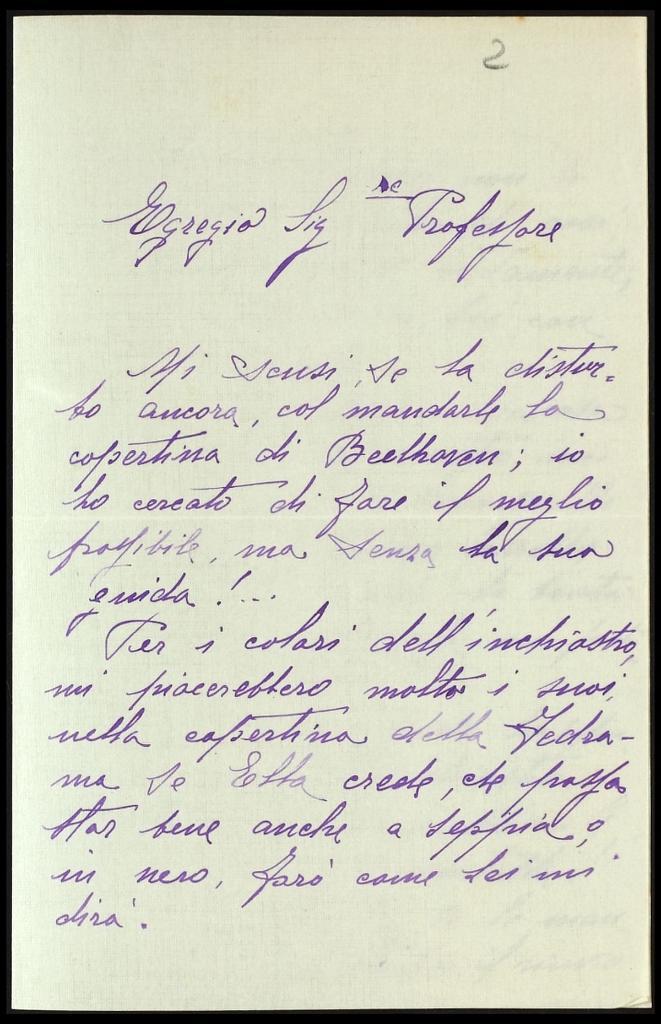 2
Egregio Sig.re Professore
Mi scusi, se la distur-
bo ancora, col mandarle la
copertina di Beethoven; io
ho cercato di fare il meglio
possibile, ma senza la sua
guida!...
Per i colori dell'inchiostro,
mi piacerebbero molto i suoi,
nella copertina della Fedra-
ma se Ella crede, che possa
star bene anche a seppia, o
in nero, farò come Lei mi
dirà.